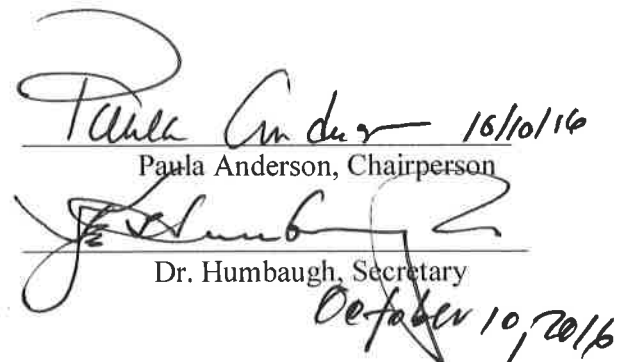 Paula Anderson 10/10/16
Paula Anderson, Chairperson
Humbaugh
Dr. Humbaugh, Secretary
October 10, 2016